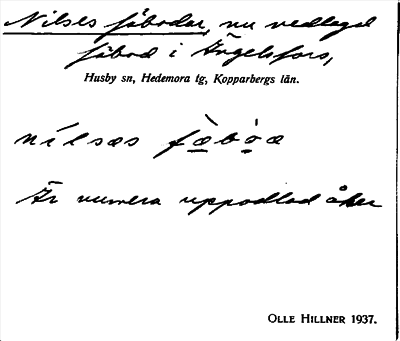 Nilses fäbodar, nu nedlagd
fäbod i Ängelsfors,
Husby sn, Hedemora tg, Kopparbergs län.
nílsæs fæ̱bò̱æ
Är numera uppodlad åker
OLLE HILLNER 1937.